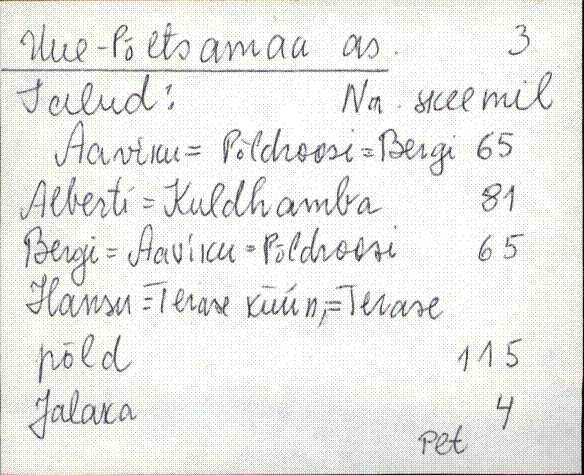 Uue-Põltsamaa as. 3
Talud: Nr. skeemil
Aaviku = Põldroosi = Bergi 65
Alberti = Kuldhamba 81
Bergi = Aaviku = Põldroosi 65
Hansu = Terase küün, = Terase
põld 115
Jalaka 4
Plt